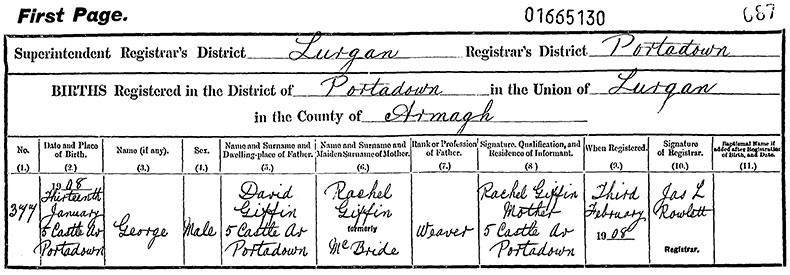 First Page. 01665130 687
Superintendent Registrar's District Lurgan Registrar's District Portadown
BIRTHS Registered in the District of Portadown in the Union of Lurgan
in the County of Armagh
No. Date and Place of Birth. Name (if any). Sex. Name and Surname and Dwelling-place of Father. Name and Surname and Maiden Surname of Mother. Rank or Profession of Father. Signature, Qualification, and Residence of Informant. When Registered. Signature of Registrar. Baptismal Name if added after Registration of Birth, and Date.
(1.) (2.) (3.) (4.) (5.) (6.) (7.) (8) (9.) (10.) (11.)
1908
Thirteenth David Rachel Rachel Giffin Third Jas L
377 January Giffin Giffin Mother February Rowlett
5 Castle Av George Male 5 Castle Av formerly Weaver 5 Castle Av 1908
Portadown Portadown McBride Portadown Registrar.